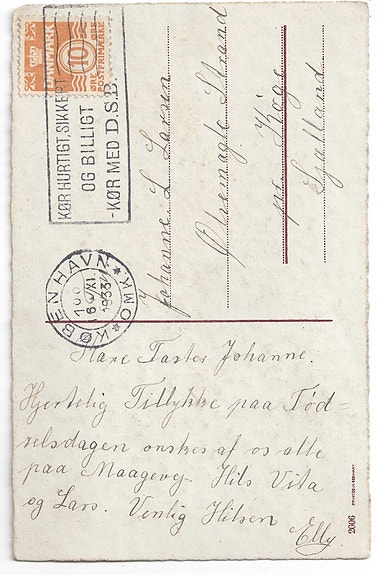 DANMARK
10
ØRE ØRE
POSTFRIMÆRKE
KØR HURTIGT, SIKKERT
OG BILLIGT
-KØR MED D.S.B.
KØBENHAVN * OMK. *
6 XI
1933
Johanne L Larsen
Ølsemagle Strand
pr Køge
Sjælland
Kære Faster Johanne.
Hjertelig Tillykke paa Fød=
selsdagen ønskes af os alle
paa Maagevej. Hils Vita
og Lars. Venlig Hilsen
Elly.
2006
PRINTED IN GERMANY